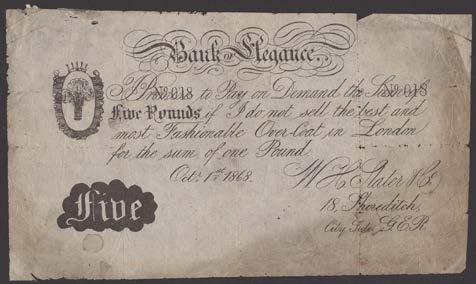 Bank of Elegance.
I Promise to Pay on Demand the Sum of
No. 018 No. 018
Five Rounds if I do not sell the best and
most Fashionable Over-Coat in London
for the sum of one Pound
Octr. 1st 1868.
W H Slater &
18, Shoreditch,
City Side, G.E.R.
Five